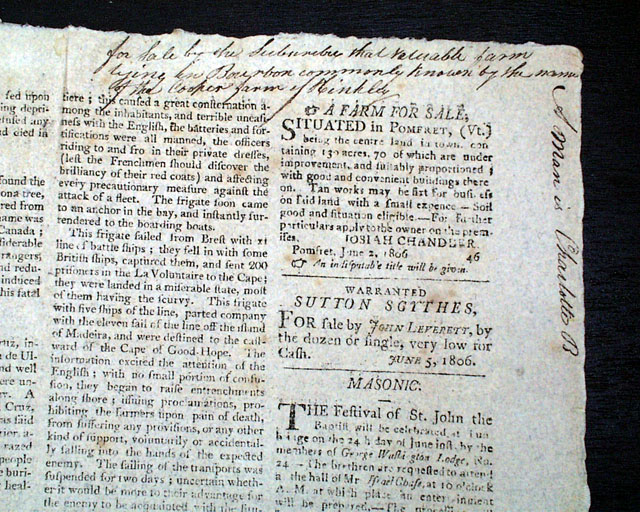 for Sale by the Subscriber that valuable farm
lying in Bourbon commonly known by the name
of the Cooper farm
A Man is Charlotte B
fed upon
ing depri-
died in
found the
ona tree,
red from
name was
Canada;
siderable
rangers,
and redu-
induced
his fatal
cruz, in-
de Ul-
and well
were un-
A
Cruz,
was said
razed
people
heal-
tiere; this caused a great consternation a-
mong the inhabitants, and terrible uneasi-
ness with the English, the batteries and for-
tifications were all manned, the officers
riding to and fro in their private dresses,
(left the Frenchmen should discover the
brilliancy of their red coats) and affecting
every precautionary measure against the
attack of a fleet. The frigate soon came
to an anchor in the bay, and instantly sur-
rendered to the boarding boats.
This frigate sailed from Brest with 11
line of battle ships; they fell in with some
British ships, captured them, and sent 200
prisoners in the La Voluntaire to the Cape;
they were landed in a miserable state, most
of them having the scurvy. This frigate
with five ships of the line, parted company
with the eleven sail of the line off the island
of Madeira, and were destined to the east-
ward of the Cape of Good Hope. The
information excited the attention of the
English; with no small portion of confu-
sion, they began to raise entrenchments
along shore; issuing proclamations, pro-
hibiting the farmers upon pain of death,
from suffering any provisions, or any other
kind of support, voluntarily or accidental-
ly falling into the hands of the expected
enemy. The sailing of the transports was
suspended for two days; uncertain wheth-
er it would be more to their advantage for
the enemy to be acquainted with the
☞ A FARM FOR SALE,
SITUATED in POMFRET, (Vt.)
being the centre land in town, con-
taining 130 acres, 70 of which are under
improvement, and suitably proportioned;
with good and convenient buildings there
on. Tan works may be set for business
on said land with a small expence—Soil
good and situation eligible.—For further
particulars apply to the owner on the prem-
ises. JOSIAH CHANDLER.
Pomfret, June 2, 1806 46
☞ An indisputable title will be given.
WARRANTED
SUTTON SCYTHES,
FOR sale by JOHN LEVERETT, by
the dozen or single, very low for
Cash. JUNE 5, 1806.
MASONIC.
THE Festival of St. John the
Baptist will be celebrated at Tun
bridge on the 24th day of June inst. by the
members of George Washington Lodge, No.
24—The brethren are requested to attend
at the hall of Mr Israel Chase, at 10 o'clock
A. M. at which place an entertainment
will be prepared,—The